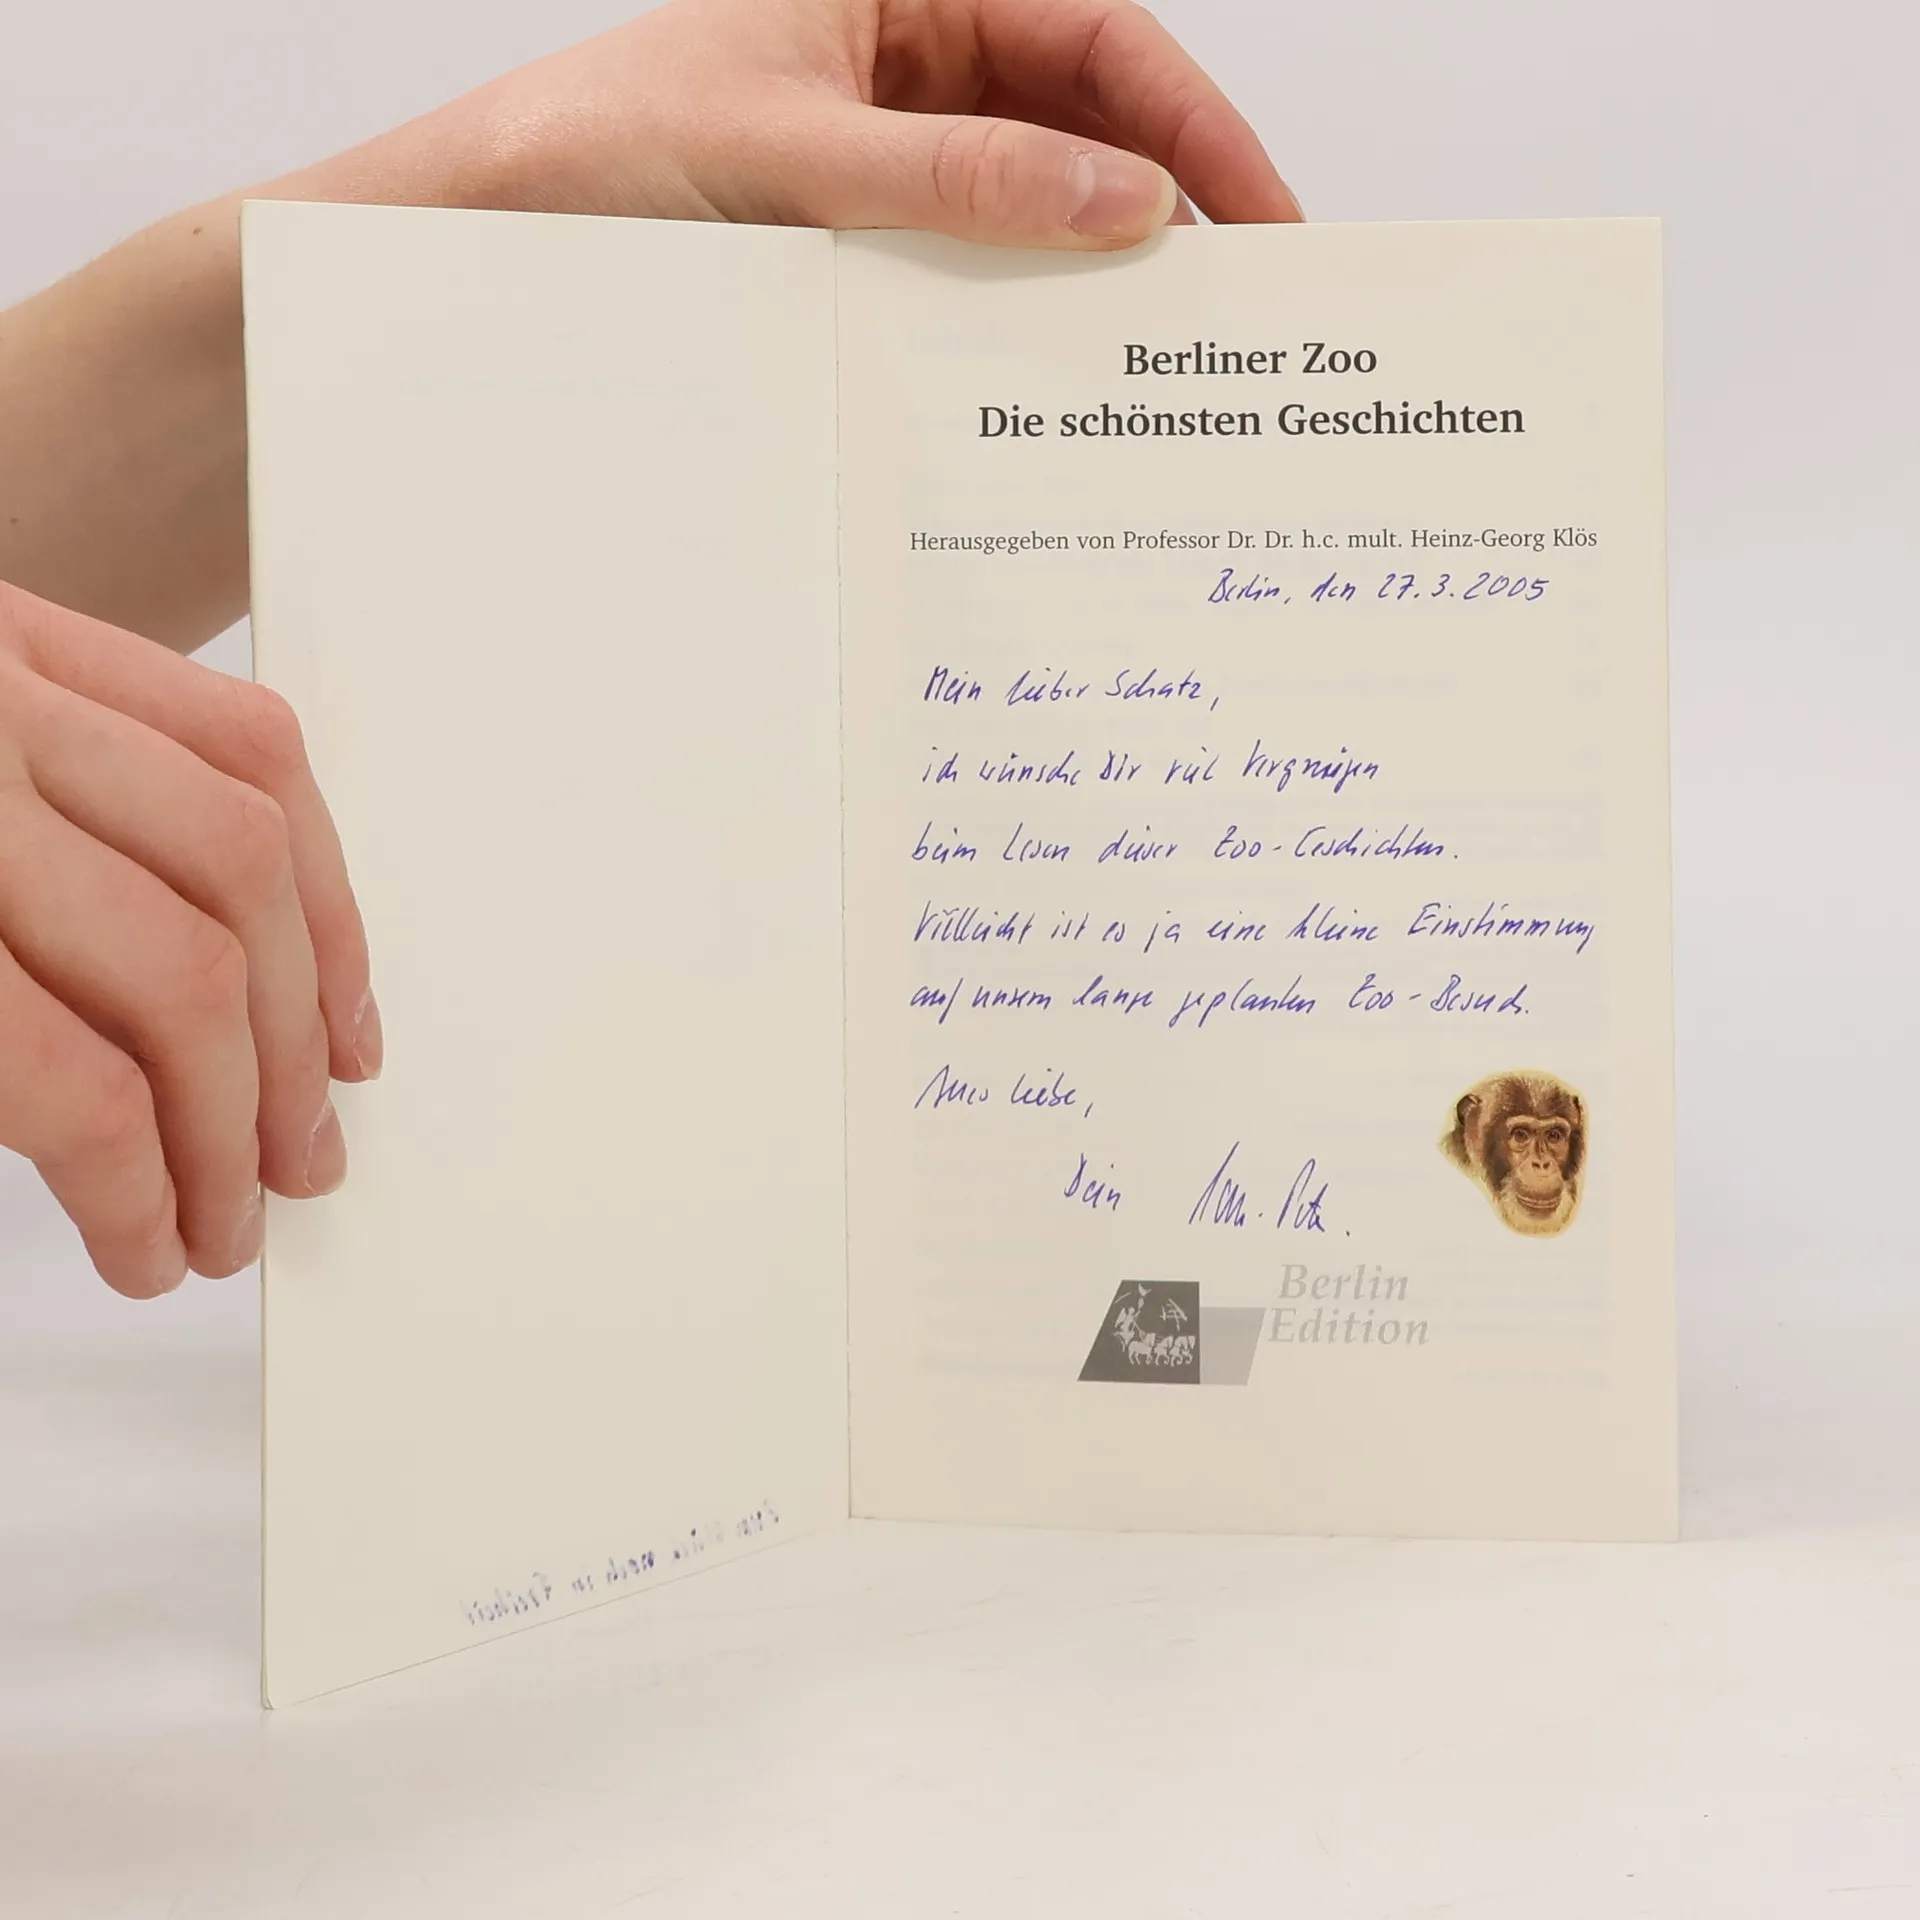 Berliner Zoo
Die schönsten Geschichten
Herausgegeben von Professor Dr. Dr. h.c. mult. Heinz-Georg Klös
Berlin, den 27.3.2005
Mein lieber Schatz,
ich wünsche Dir viel Vergnügen
beim Lesen dieser Zoo-Geschichten.
Vielleicht ist es ja eine kleine Einstimmung
auf unsern lange geplanten Zoo-Besuch.
Alles liebe,
Dein
Berlin
Edition
noch in Freiheit